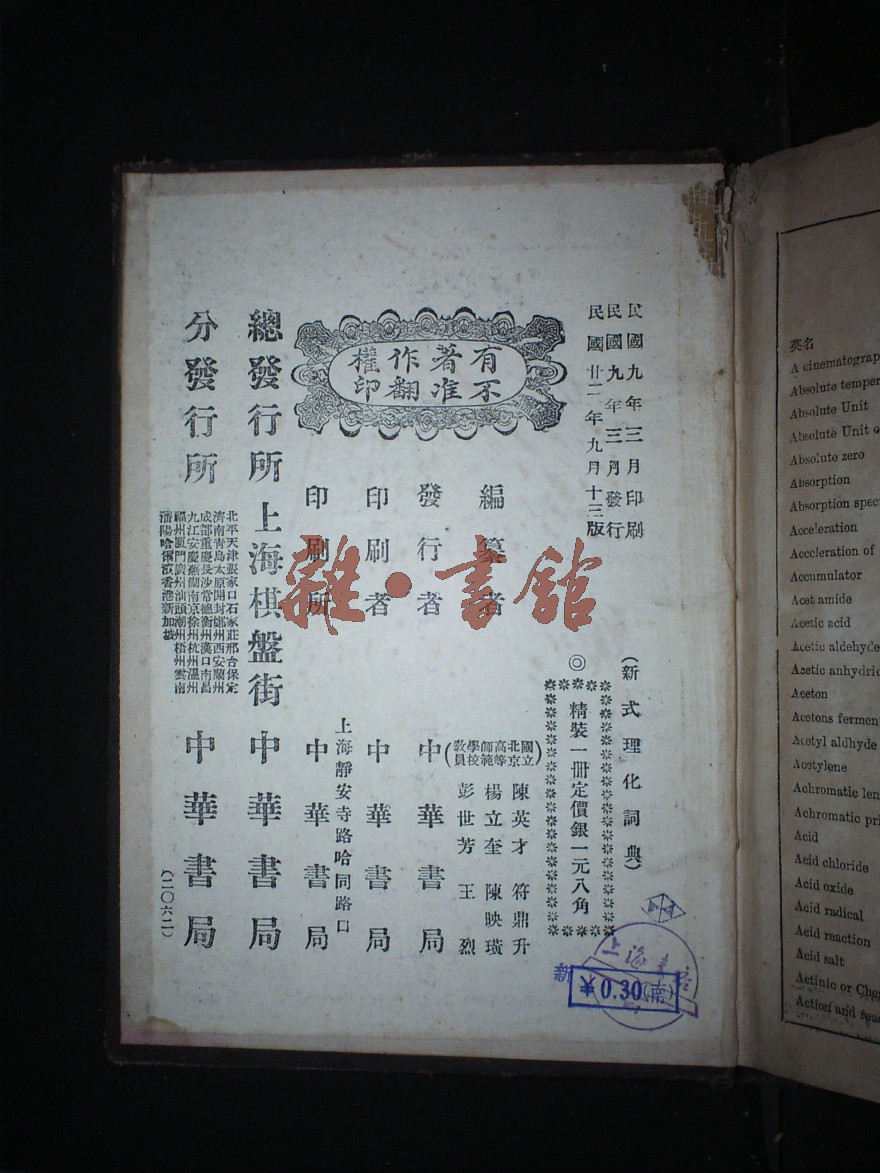 民國九年三月印刷
民國九年三月發行
民國廿二年九月十三版
(新式理化詞典)
◎精裝一冊定價銀一元八角
有著作權
不准翻印
編纂者
(國立北京高等師範學校教員)
陳英才 符鼎升
楊立奎 陳映璜
彭世芳 王烈
發行者 中華書局
印刷者 中華書局
上海靜安寺路哈同路口
印刷所 中華書局
總發行所 上海棋盤街 中華書局
分發行所
北平天津張家口石家莊邢台保定
濟南青島太原開封鄭州西安蘭州
成都重慶長沙常德衡州漢口南昌
九江安慶蕪湖南京徐州杭州溫州
福州廈門廣州汕頭潮州梧州雲南
瀋陽哈爾濱香港新加坡
中華書局
(二〇六二)
雜·書館
新
¥0.30(南)
英名
A cinematograp
Absolute temper
Absolute Unit
Absolute Unit o
Absolute zero
Absorption
Absorption spec
Acceleration
Acceleration of
Accumulator
Acet amide
Acetic acid
Acetic aldehyde
Acetic anhydric
Aceton
Acetons fermen
Acetyl aldhyde
Acetylene
Achromatic len
Achromatic pri
Acid
Acid chloride
Acid oxide
Acid radical
Acid reaction
Acid salt
Actinic or Che
Action and rea